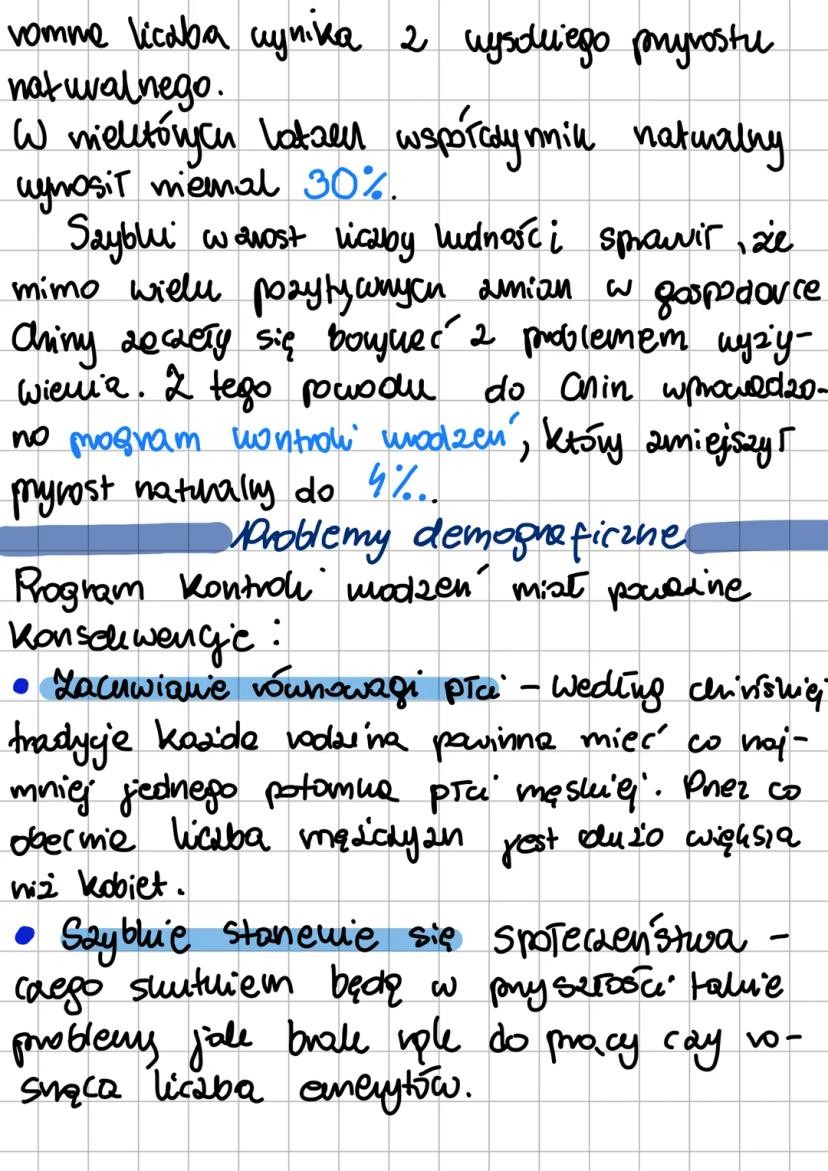 romna liczba wynika z wysokiego przyrostu
naturalnego.
W niektórych latach współczynnik naturalny
wynosił niemal 30%.
Szybki wzrost liczby ludności sprawił, że
mimo wielu pozytywnych zmian w gospodarce
Chiny zaczęły się borykać z problemem wyży-
wienia. Z tego powodu do Chin wprowadzo-
no program kontroli urodzeń, który zmiejszył
przyrost naturalny do 4%.
Problemy demograficzne
Program kontroli urodzeń miał poważne
konsekwencje:
• Zachwianie równowagi płci – Według chińskiej
tradycje każda rodzina powinna mieć co naj-
mniej jednego potomka płci męskiej. Przez co
obecnie liczba mężczyzn jest dużo większa
niż kobiet.
• Szybkie starzenie się społeczeństwa –
czego skutkiem będą w przyszłości takie
problemy, jak brak rąk do pracy czy ro-
snąca liczba emerytów.